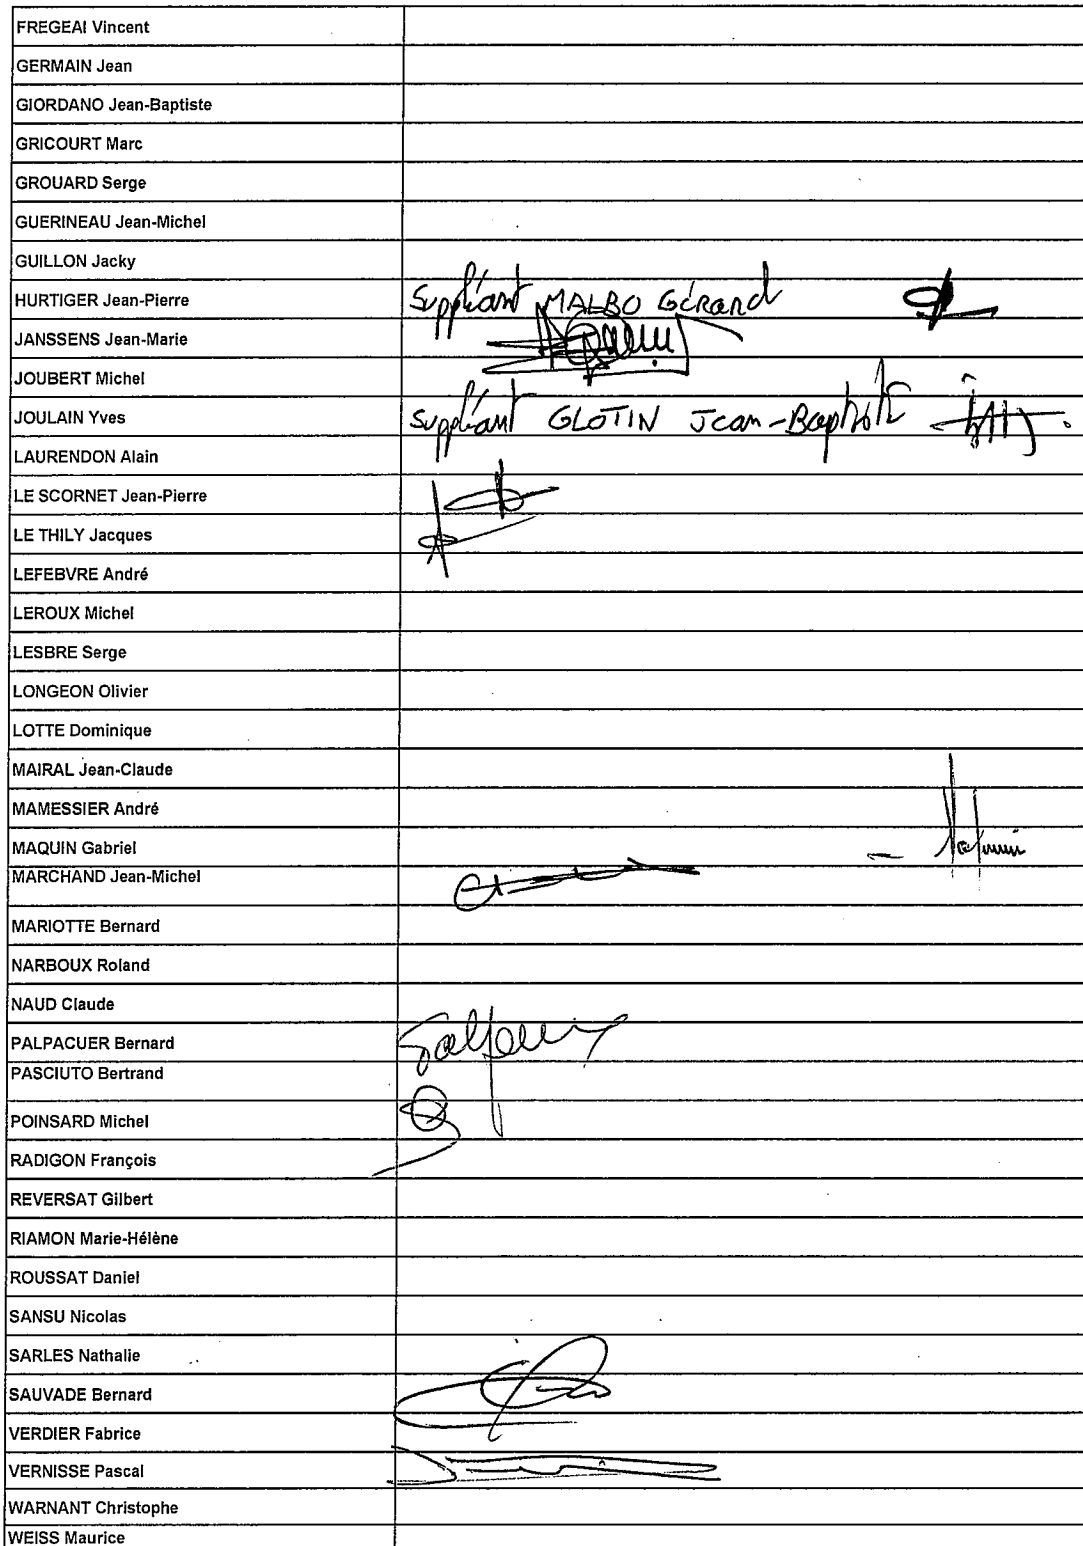 FREGEAI Vincent
GERMAIN Jean
GIORDANO Jean-Baptiste
GRICOURT Marc
GROUARD Serge
GUERINEAU Jean-Michel
GUILLON Jacky
HURTIGER Jean-Pierre Suppléant MALBO Gérard
JANSSENS Jean-Marie
JOUBERT Michel
JOULAIN Yves Suppléant GLOTIN Jean-Baptiste
LAURENDON Alain
LE SCORNET Jean-Pierre
LE THILY Jacques
LEFEBVRE André
LEROUX Michel
LESBRE Serge
LONGEON Olivier
LOTTE Dominique
MAIRAL Jean-Claude
MAMESSIER André
MAQUIN Gabriel
MARCHAND Jean-Michel
MARIOTTE Bernard
NARBOUX Roland
NAUD Claude
PALPACUER Bernard
PASCIUTO Bertrand
POINSARD Michel
RADIGON François
REVERSAT Gilbert
RIAMON Marie-Hélène
ROUSSAT Daniel
SANSU Nicolas
SARLES Nathalie
SAUVADE Bernard
VERDIER Fabrice
VERNISSE Pascal
WARNANT Christophe
WEISS Maurice